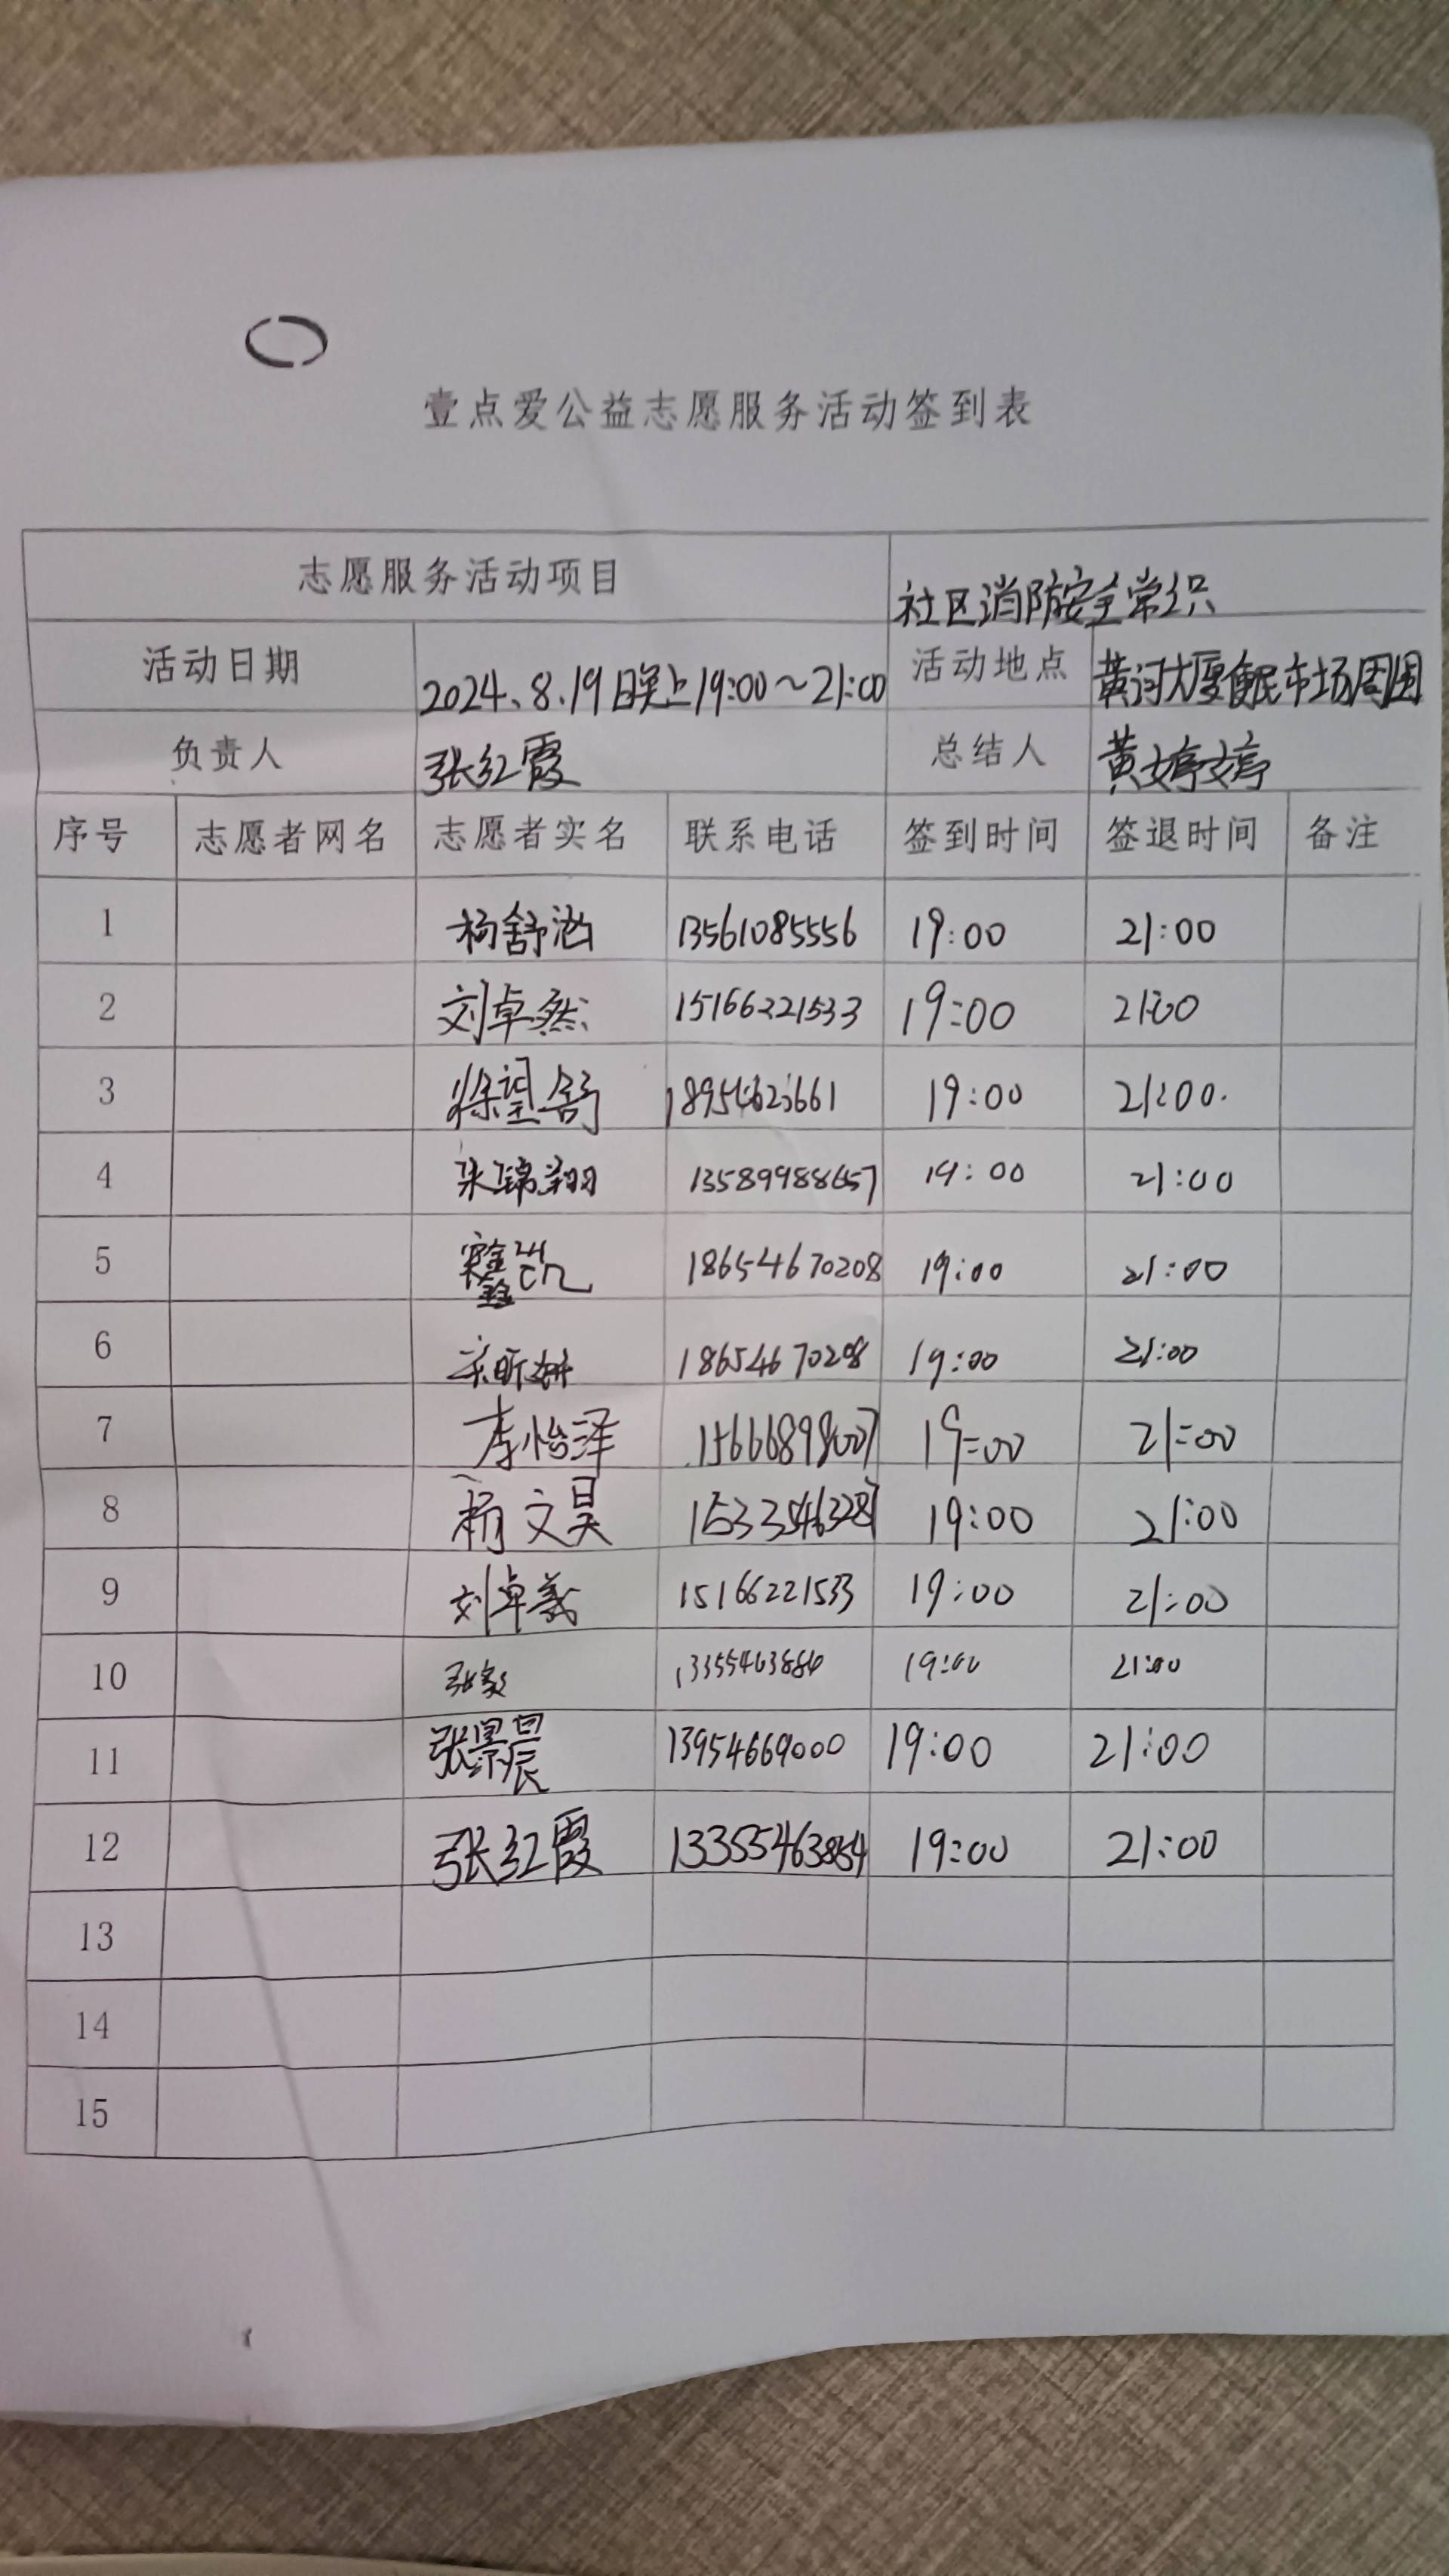 壹点爱公益志愿服务活动签到表
志愿服务活动项目 社区消防安全常识
活动日期 2024、8.19日晚上19:00~21:00 活动地点 黄河大厦便民市场周围
负责人 张红霞 总结人 黄婷婷
序号 志愿者网名 志愿者实名 联系电话 签到时间 签退时间 备注
1 杨舒涵 13561085556 19:00 21:00
2 刘卓然 15166221533 19:00 21:00
3 徐望舒 18954623661 19:00 21:00.
4 张锦翔 13589988657 19:00 21:00
5 宋鑫凯 18654670208 19:00 21:00
6 宋昕妍 18654670208 19:00 21:00
7 李怡泽 15666898007 19:00 21:00
8 杨文昊 15333546328 19:00 21:00
9 刘卓義 15166221533 19:00 21:00
10 19:00 21:00
11 张景晨 13954669000 19:00 21:00
12 张红霞 13355463854 19:00 21:00
13
14
15